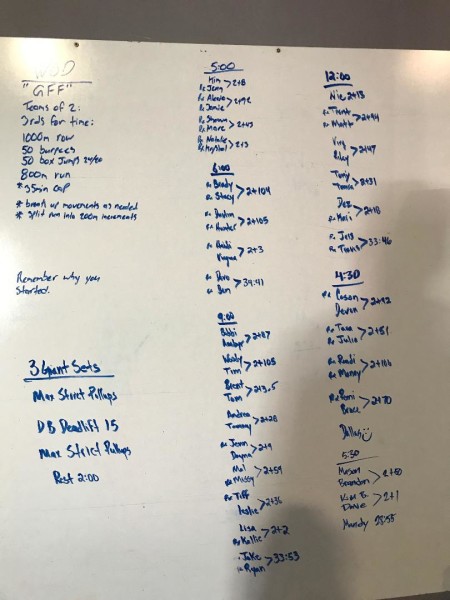 WOD
"GFF"
Teams of 2:
3rds for time:
1000m row
50 burpees
50 box jumps 24/20
800m run
*35min cap
* break up movements as needed
* split run into 200m increments
Remember why you
started.
3 Giant Sets
Max Strict Pullups
DB Deadlift 15
Max Strict Pullups
Rest 2:00
5:00
Kim
Rx Jenny >2+8
Rx Alexis
Rx Jamie >2+92
Rx Shawn
Rx Marc >2+43
Rx Natalie
Rx Krystal >2+3
6:00
Rx Brady
Rx Stacy >2+104
Rx Dustin
Rx Hunter >2+105
Rx Heidi
>2+3
Rx Dave
Rx Ben >34:41
9:00
Bobbi
>2+87
Wendy
Tim >2+103
Brent
Tom >2+3.5
Andrea
Tammy >2+28
Rx Jenn
Dayna >2+9
Mal
Rx Missy >2+59
Rx Tiff
Leslie >2+36
Lisa
Rx Kallie >2+2
Jake
Ryan >33:53
12:00
2+13
Rx Trent
>2+94
Riley >2+47
Tony
>2+31
Dez
Rx Mari >2+18
Rx Jess
Rx Travis >33:46
4:30
Rx Cason
Devon >2+92
Rx Tara
Rx Julia >2+51
Rx Randi
Rx Manny >2+116
Rx Remi
Bruce >2+70
Dallas
5:30
Mason
Brandon
Kim B
Dave >2+1
Mandy